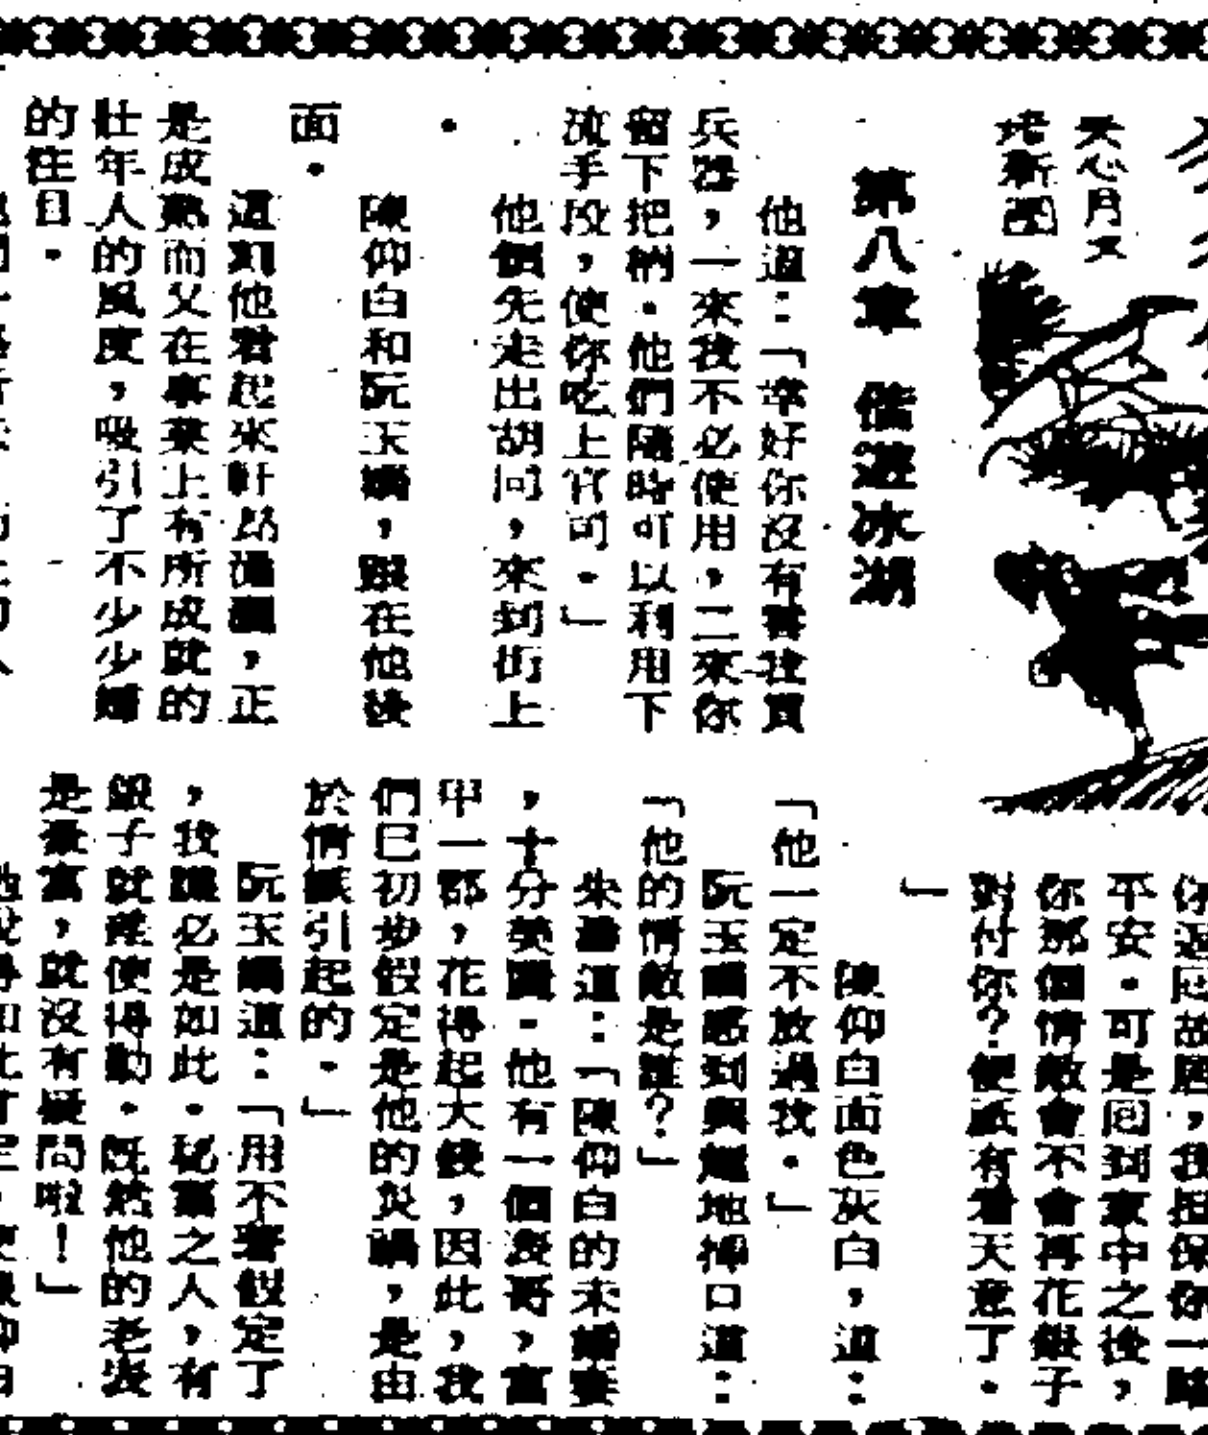 天心月文
培新圖
第八章　偕遊冰湖
他道：「幸好你沒有替我買
兵器，一來我不必使用，二來你
留下把柄。他們隨時可以利用下
流手段，使你吃上官司。」
他領先走出胡同，來到街上
。
陳仰白和阮玉嬌，跟在他後
面。
這刻他看起來軒昂瀟灑，正
是成熟而又在事業上有所成就的
壯年人的風度，吸引了不少少婦
的注目。
你返回故居，我担保你一路
平安。可是回到家中之後，
你那個情敵會不會再花銀子
對付你？便祇有看天意了。
」
陳仰白面色灰白，道：
「他一定不放過我。」
阮玉嬌感到興趣地揷口道：
「他的情敵是誰？」
朱濤道：「陳仰白的未婚妻
，十分美麗。他有一個表哥，富
甲一郡，花得起大錢，因此，我
們已初步假定是他的災禍，是由
於情嫉引起的。」
阮玉嬌道：「用不著假定了
，我誰必是如此。秘寨之人，有
銀子就能使得動。既然他的老表
是豪富，就沒有疑問啦！」